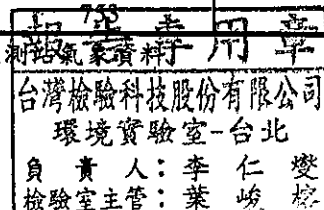 753
報告專用章
測站氣象資料
台灣檢驗科技股份有限公司
環境實驗室-台北
負責人：李仁燮
檢驗室主管：葉峻榕